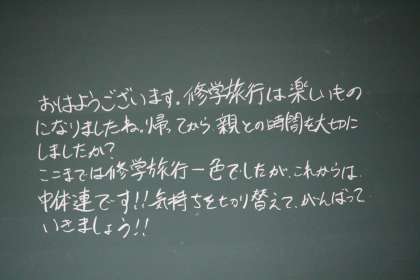 おはようございます。修学旅行は楽しいもの
になりましたね。帰ってから親との時間を大切に
しましたか?
ここまでは修学旅行一色でしたが、これからは
中体連です!!気持ちを切り替えて、がんばって
いきましょう!!